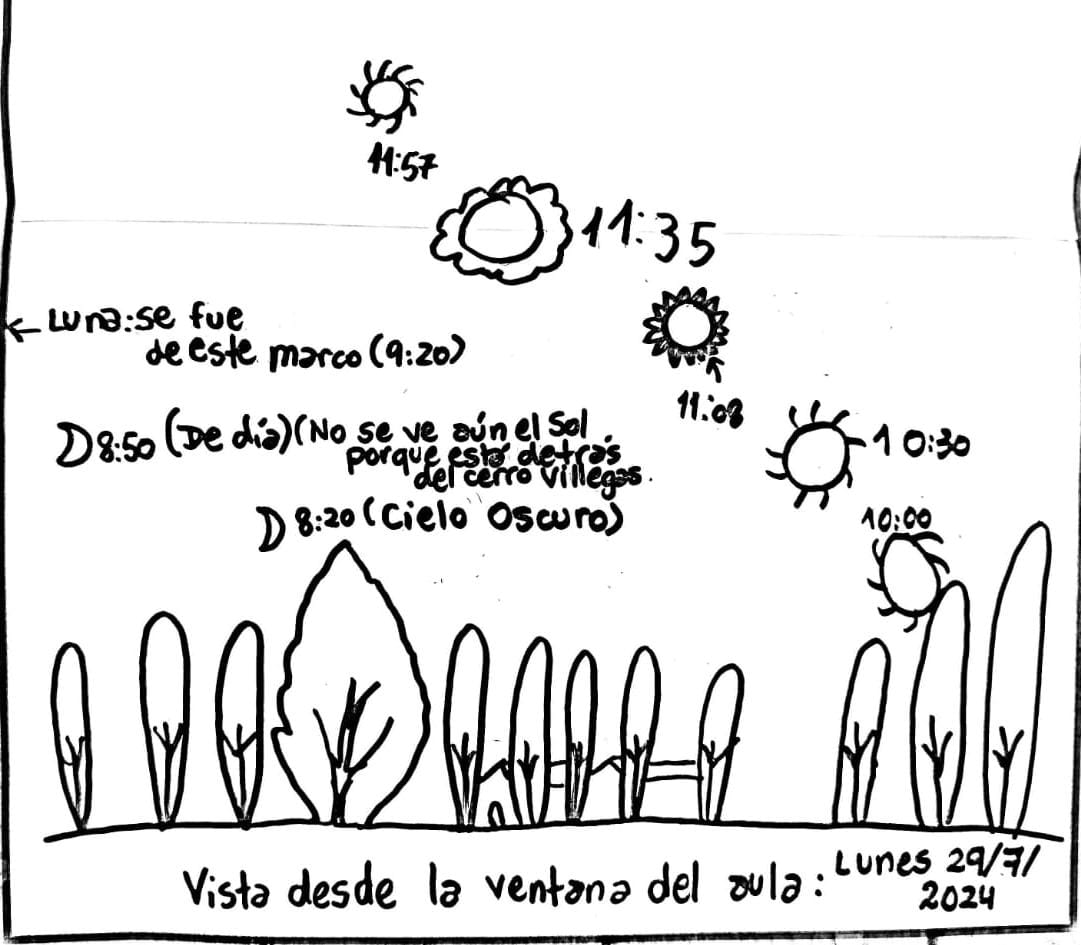 11:57
11:35
Luna: se fue
de este marco (9:20)
11:08
8:50 (De día) (No se ve aún el Sol
porque está detrás
del cerro Villegas.
10:30
8:20 (Cielo Oscuro)
10:00
Vista desde la ventana del aula: Lunes 29/7/
2024